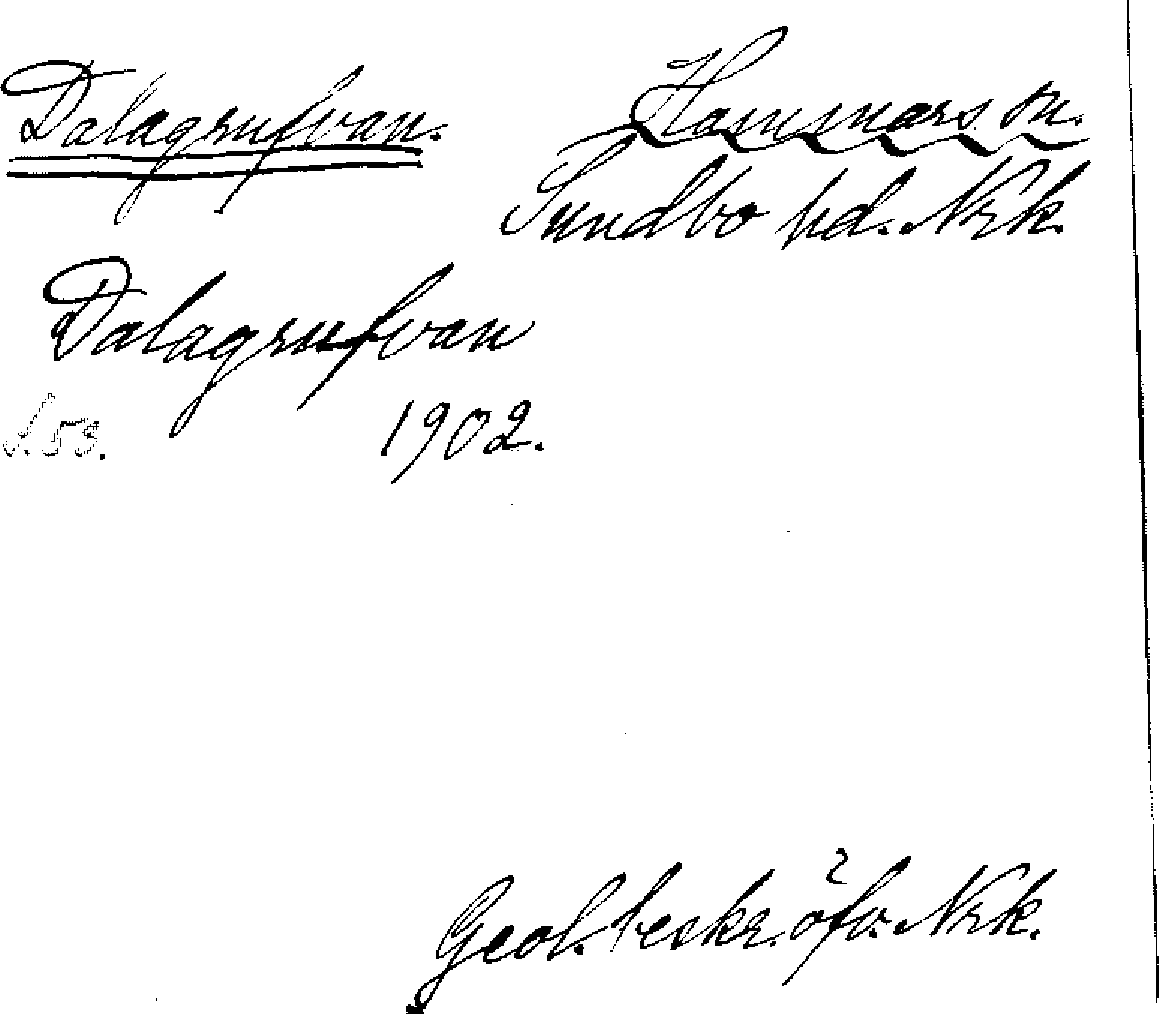 Dalagrufvan.
Hammars sn.
Sundbo hd. Nrk.
Dalagrufvan
S. 53. 1902.
Geol. beskr. öfv. Nrk.